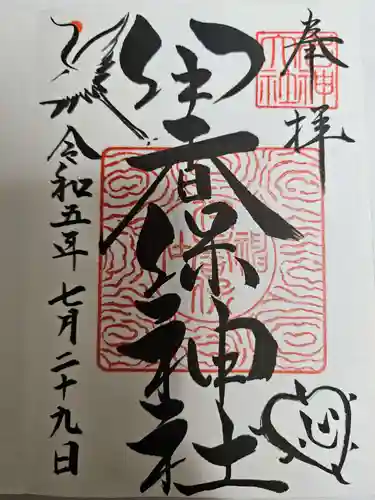 奉拝
伊香保神社
令和五年 七月二十九日